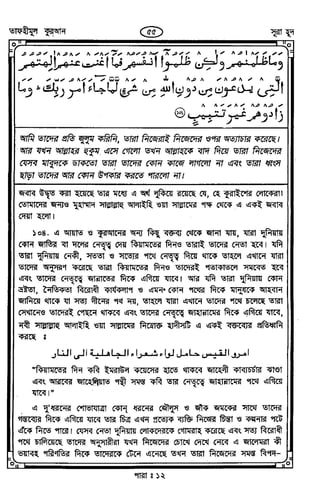 তাফহীমুল কুরআন
৫৫
সূরা হূদ
وَمَا ظَلَمْنٰهُمْ وَلٰكِنْ ظَلَمُوْۤا اَنْفُسَهُمْ فَمَاۤ اَغْنَتْ عَنْهُمْ اٰلِهَتُهُمُ
الَّتِيْ يَدْعُوْنَ مِنْ دُوْنِ اللّٰهِ مِنْ شَيْءٍ لَّمَّا جَاۤءَ اَمْرُ رَبِّكَ ؕ وَمَا
زَادُوْهُمْ غَيْرَ تَتْبِيْبٍ
আমি তাদের প্রতি জুলুম করিনি, তারা নিজেরাই নিজেদের ওপর অত্যাচার করেছে।
আর যখন আল্লাহর হুকুম এসে গেলো তখন আল্লাহকে বাদ দিয়ে তারা নিজেদের
যেসব মাবুদকে ডাকতো তারা তাদের কোন কাজে লাগলো না এবং তারা ধ্বংস
ছাড়া তাদের আর কোন উপকার করতে পারলো না।
জবাব উদ্ধৃত করা হয়েছে তার মধ্যে এ অর্থ লুকিয়ে রয়েছে যে, হে কুরাইশের লোকেরা!
তোমাদের জন্যও মুহাম্মাদ সাল্লাল্লাহু আলাইহি ওয়া সাল্লামের পক্ষ থেকে এ একই জবাব
দেয়া হলো।
১০৪. এ আয়াত ও কুরআনের অন্য কিছু বক্তব্য থেকে জানা যায়, যারা দুনিয়ায়
কোন জাতির বা দলের নেতৃত্ব দেয় কিয়ামতের দিনও তারাই তাদের নেতা হবে। যদি
তারা দুনিয়ায় নেকী, সততা ও সত্যের পথে নেতৃত্ব দিয়ে থাকে তাহলে এখানে যারা
তাদের অনুসরণ করেছে তারা কিয়ামতের দিনও তাদেরই পতাকাতলে সমবেত হবে
এবং তাদের নেতৃত্বে জান্নাতের দিকে এগিয়ে যাবে। আর যদি তারা দুনিয়ায় কোন
ভ্রষ্টতা, নৈতিকতা বিরোধী কার্যকলাপ ও এমন কোন পথের দিকে মানুষকে আহবান
জানিয়ে থাকে যা সত্য দীনের পথ নয়, তাহলে যারা এখানে তাদের পথে চলেছে তারা
সেখানেও তাদেরই পেছনে থাকবে এবং তাদের নেতৃত্বে জাহান্নামের দিকে এগিয়ে যাবে,
নবী সাল্লাল্লাহু আলাইহি ওয়া সাল্লামের নিম্নোক্ত হাদীসটি এ একই বক্তব্যের প্রতিধ্বনি
করছে ঃ
امرؤ القيس حامل لواء شعراء الجاهلية الى النار
"কিয়ামতের দিন কবি ইমরাউল কয়েসের হাতে থাকবে জাহেলী কাব্যচর্চার ঝাণ্ডা
এবং আরবের জাহেলিয়াত পন্থী সমস্ত কবি তার নেতৃত্বে জাহান্নামের পথে এগিয়ে
যাবে।"
এ দু'ধরনের শোভাযাত্রা কোন্ ধরনের জৌলুস ও জাঁক জমকের সাথে তাদের
গন্তব্যের দিকে এগিয়ে যাবে তার চিত্র এখন প্রত্যেক ব্যক্তি নিজের চিন্তা ও কল্পনার পটে
এঁকে নিতে পারে। যেসব নেতা দুনিয়ায় লোকদেরকে গোমরাহ করেছে এবং সত্য বিরোধী
পথে চালিয়েছে তাদের অনুসারীরা যখন নিজেদের চোখে দেখে নেবে এ জালেমরা কী
ভয়াবহ পরিণতির দিকে তাদেরকে টেনে এনেছে তখন তারা নিজেদের সমস্ত বিপদ-
পারা ঃ ১২